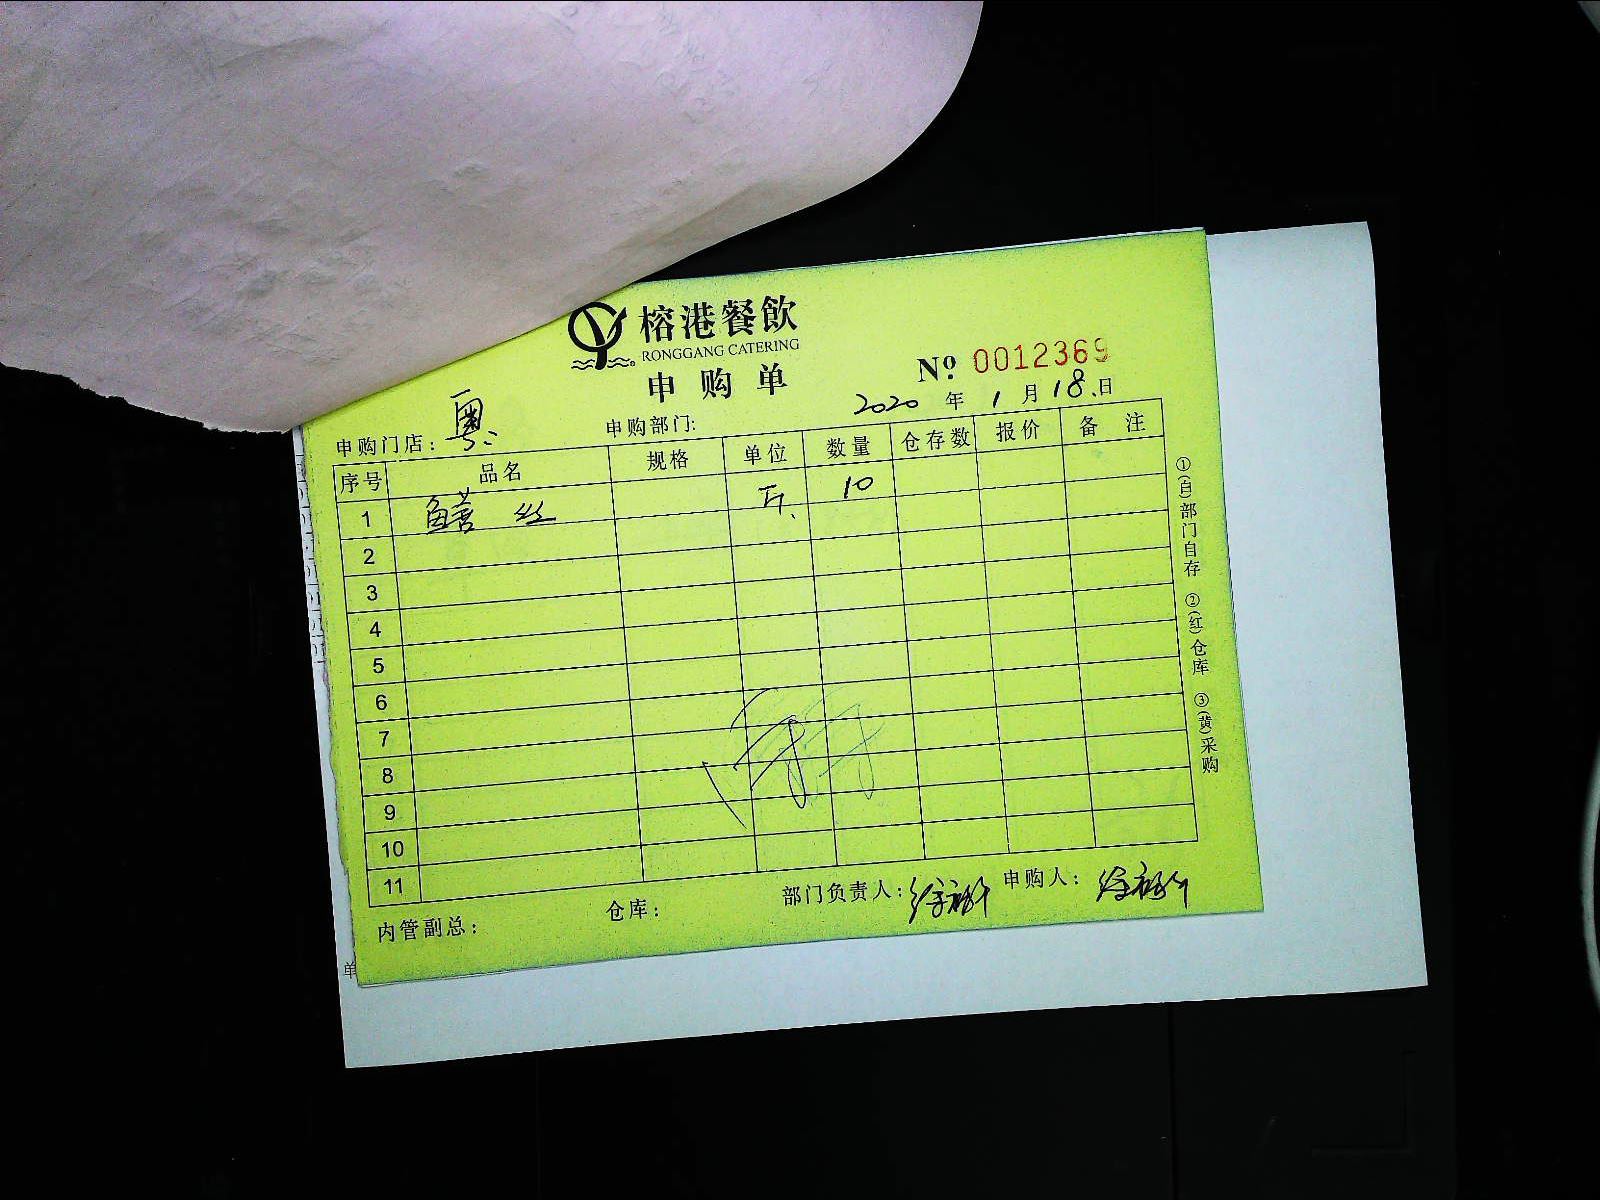 榕港餐飲
RONGGANG CATERING
申购单
№ 0012369
2020 年 1 月 18 日
申购门店: 粤 申购部门:
序号 品名 规格 单位 数量 仓存数 报价 备注
1 鳝丝 斤 10
2
3
4
5
6
7
8
9
10
11
内管副总: 仓库: 部门负责人: 申购人:
①(白)部门自存 ②(红)仓库 ③(黄)采购
单